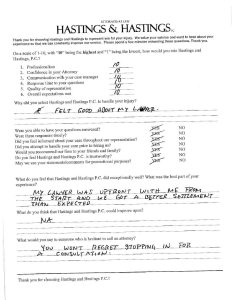 ATTORNEYS AT LAW
HASTINGS & HASTINGS
Thank you for choosing Hastings and Hastings to represent you for your injury. We value your opinion and want to hear about your
experience so that we can constantly improve our service. Please spend a few minutes answering these questions. Thank you.
On a scale of 1-10, with "10" being the highest and "1" being the lowest, how would you rate Hastings and
Hastings, P.C.?
1. Professionalism 10
2. Confidence in your Attorney 10
3. Communication with your case manager 10
4. Response time to your questions 10
5. Quality of representation 10
6. Overall expectations met 10
Why did you select Hastings and Hastings P.C. to handle your injury?
I FELT GOOD ABOUT MY LAWYER.
Were you able to have your questions answered? YES NO
Were these responses timely? YES NO
Did you feel informed about your case throughout our representation? YES NO
Did you attempt to handle your case prior to hiring us? YES NO
Would you recommend our firm to your friends and family? YES NO
Do you feel Hastings and Hastings P.C. is trustworthy? YES NO
May we use your statements/comments for promotional purposes? YES NO
What do you feel that Hastings and Hastings P.C. did exceptionally well? What was the best part of your
experience?
MY LAWYER WAS UPFRONT WITH ME FROM
THE START AND WE GOT A BETTER SETTLEMENT
THAN EXPECTED.
What do you think that Hastings and Hastings P.C. could improve upon?
NA
What would you say to someone who is hesitant to call an attorney?
YOU WONT REGRET STOPPING IN FOR
A CONSULTATION.
Thank you for choosing Hastings and Hastings P.C.!